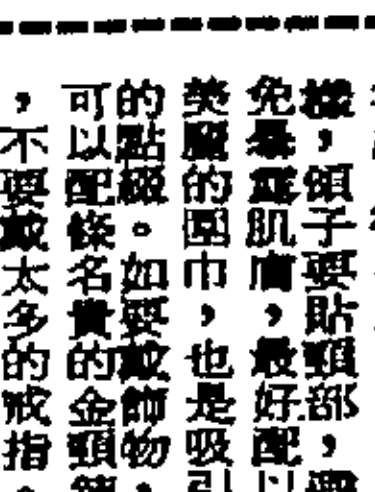 樣，領子要貼頸部，
免暴露肌膚，最好配以
美麗的圍巾，也是吸引
的點綴。如要戴飾物，
可以配條名貴的金頸鍊
，不要戴太多的戒指。